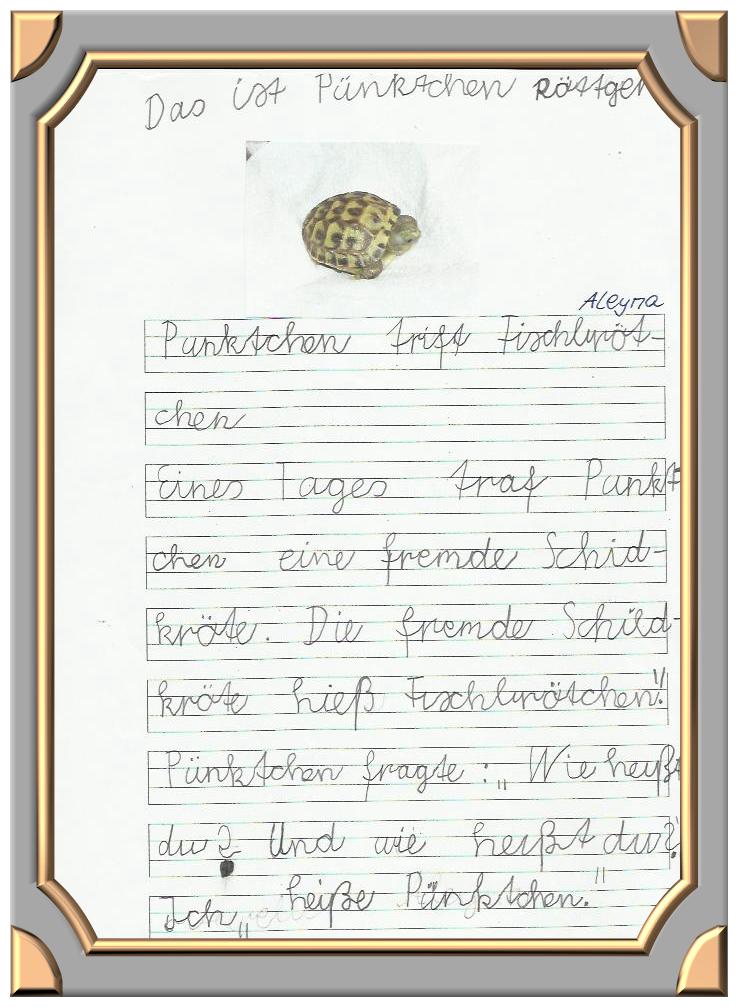 Das ist Pünktchen Röttgen
Aleyna
Punktchen trift Fischbröt-
chen
Eines Tages traf Punkt
chen eine fremde Schid-
kröte. Die fremde Schild-
kröte hieß Fischbrötchen!"
Pünktchen fragte: „Wie heißt
du? Und wie heißt du?
Ich „ heiße Pünktchen."